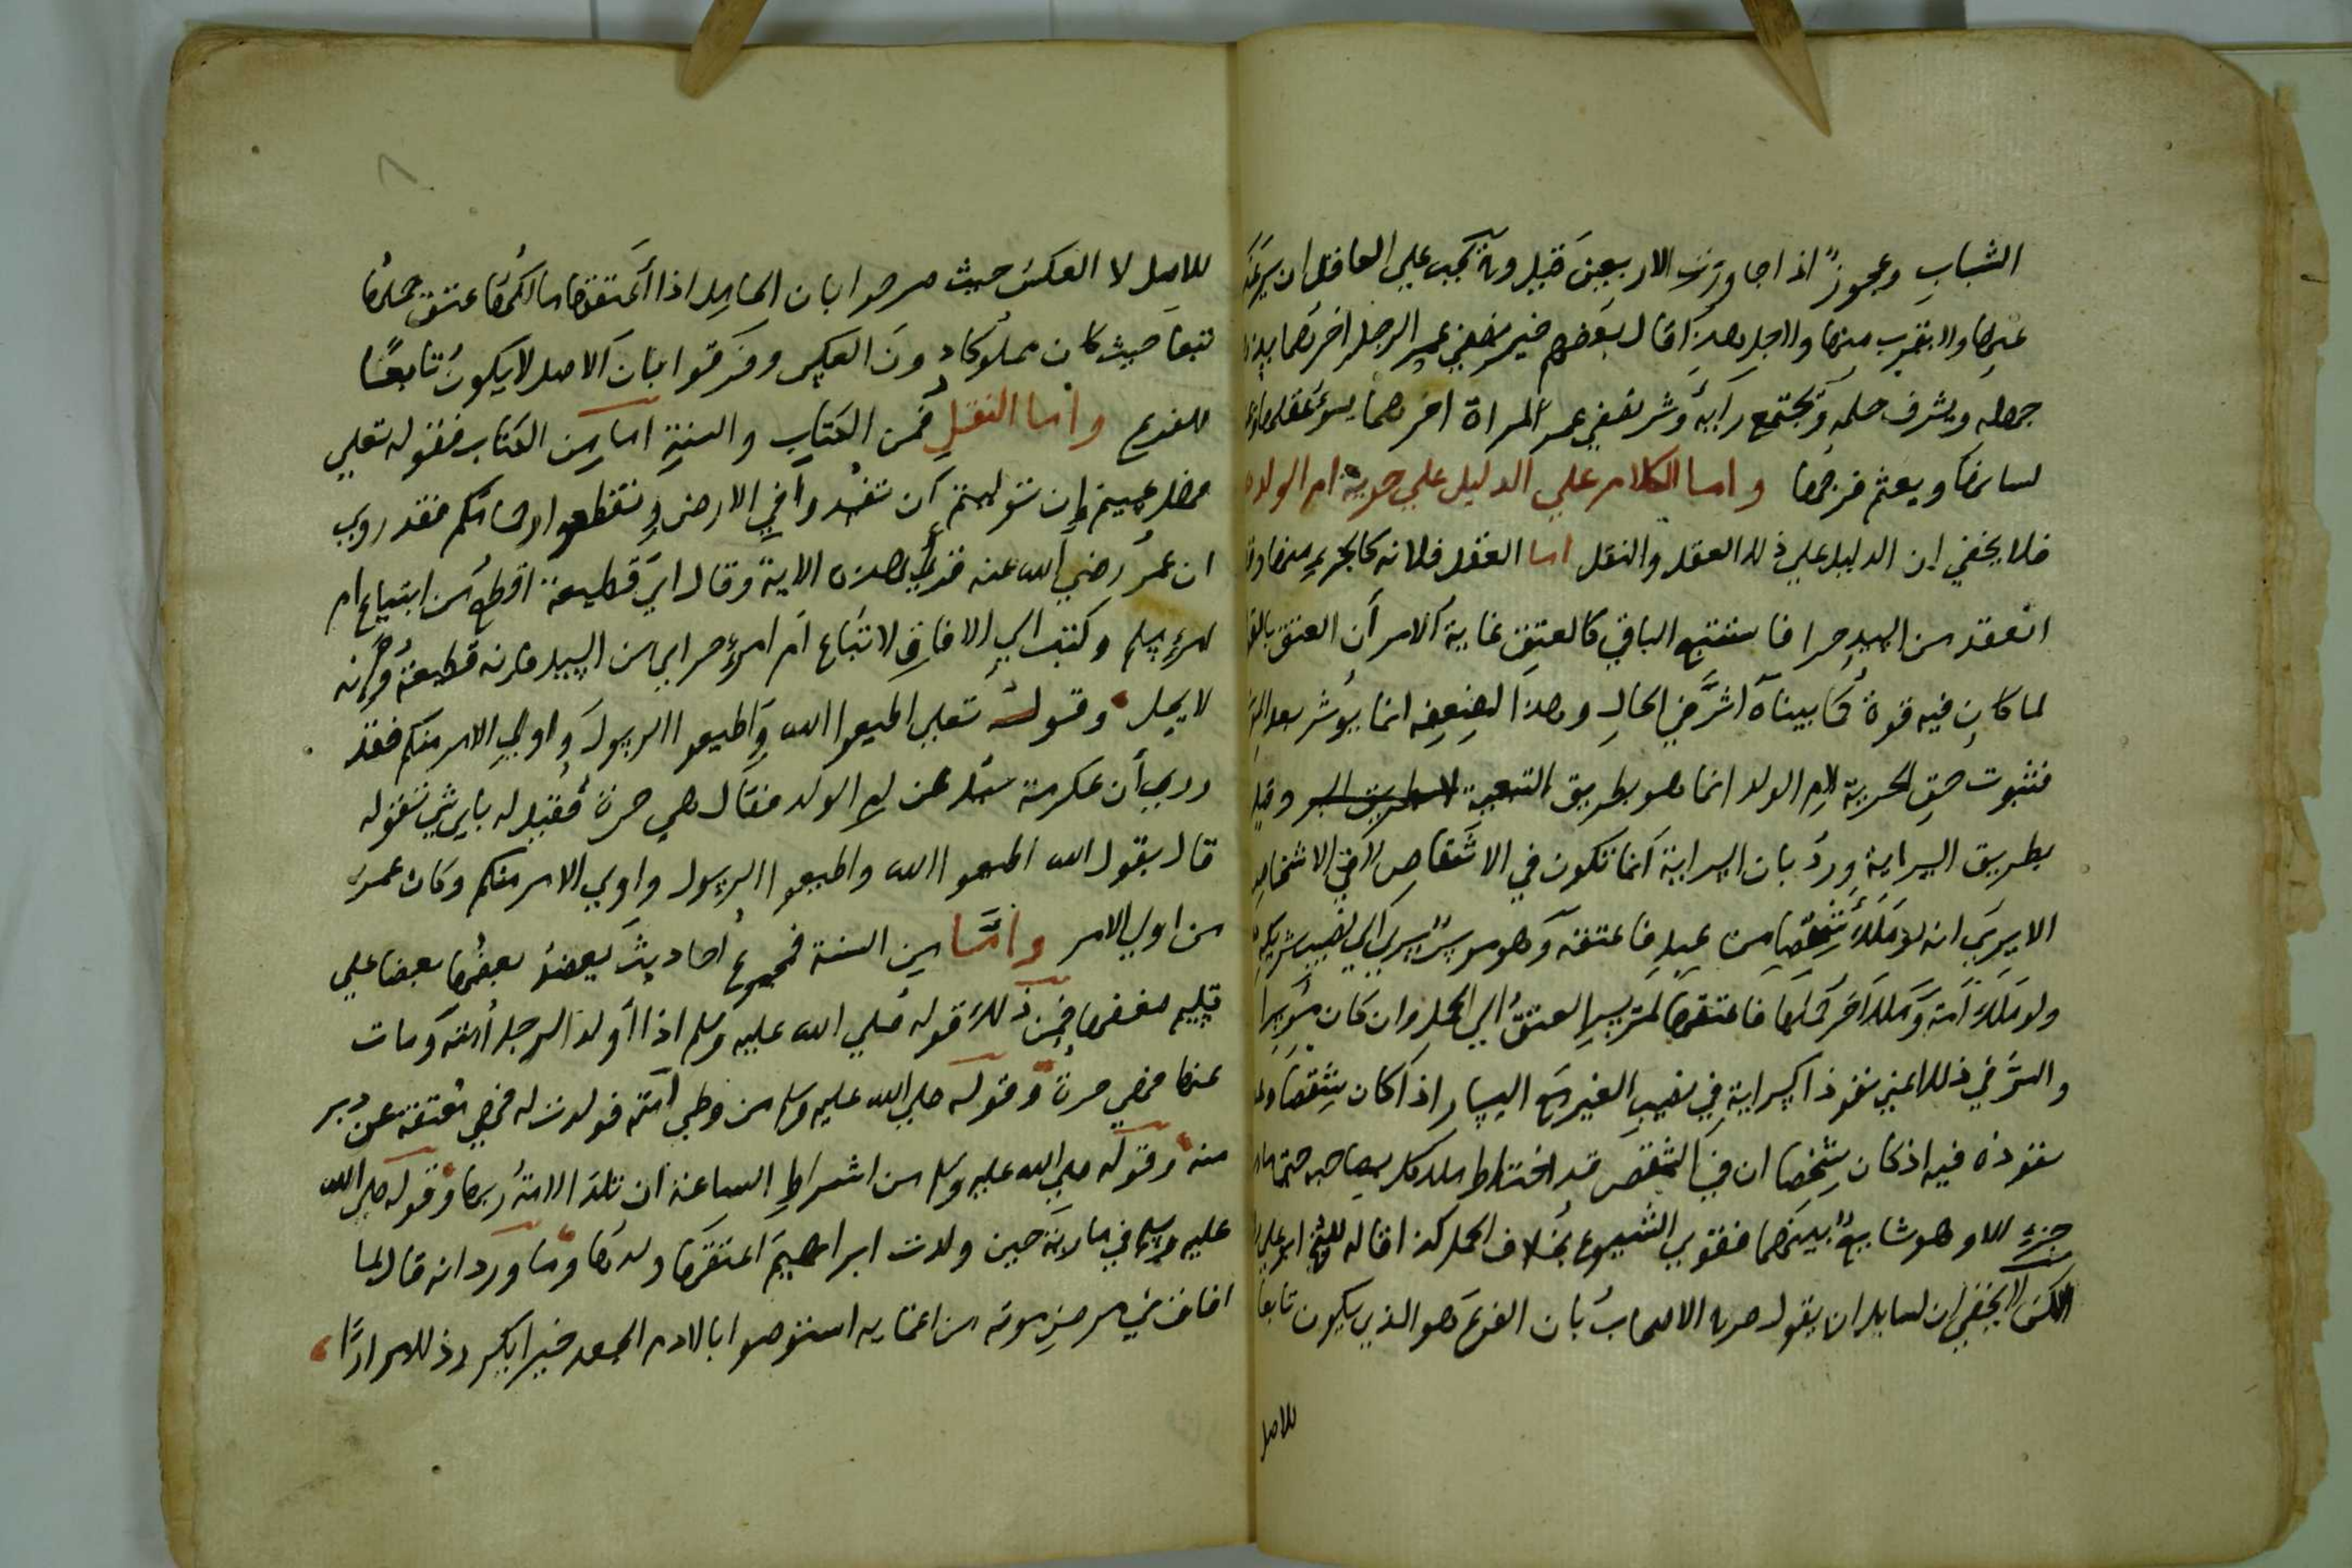 الشباب وعجوزٌ اذا جاوزت الاربعين قيل وانه يجب على العاقل ان يرغب
عنها ولا يقرب منها ولاجل هذا قال بعضهم خير نصفي عمر الرجل اخرهما يذهب
جهله ويشرف حلمه ويجتمع رايه وشر نصفي عمر المراة اخرهما يسوء عقلها
لسانها ويعقم فرجها واما الكلام علي الدليل علي حرية ام الولد
فلا يخفي ان الدليل علي ذلك العقل والنقل اما العقل فلانه كالجزء منها وقد
انعقد من السيد حرا فاستتبع الباقي كالعتق غاية الامر أن العتق
لما كان فيه قوة كما بيناه اثر في الحال وهذا لضعفه انما يؤثر بعد
فثبوت حق الحرية لام الولد انما هو بطريق التبعية لا بطريق وقيل
بطريق السراية ورد بان السراية انما تكون في الاشقاص لا في الاشخاص
الا يرى انه لو ملك شقصا من عبد فاعتقه وهو موسر يسري الي نصيب شريكه
ولو ملك أمة وملك اخر حملها فاعتقها لم يسر العتق الي الحمل وان كان موسرا
والسر في ذلك اعني نفوذ السراية في نصيب الغير مع اليسار اذا كان شقصا
نفوذه فيه اذ كان شخصا ان في الشقص قد اختلط ملك كل بصاحبه حتى
جزء الا وهو شايع بينهما فقوي الشيوع بخلاف الحمل كذا قاله الشيخ ابو علي
لكن لا يخفي ان لسايل ان يقول صرح الاصحاب بان الفرع هو الذي يكون تابعا
للاصل
للاصل لا العكس حيث صرحوا بان الحامل اذا أعتقها مالكها عتق حملها
تبعا حيث كان مملوكا دون العكس وفرقوا بان الاصل لا يكون تابعًا
للفرع واما النقل فمن الكتاب والسنة اما من الكتاب فقوله تعلي
فهل عسيتم إن توليتم أن تفسدوا في الارض وتقطعوا ارحامكم فقد روي
ان عمر رضي الله عنه قرأ هذه الاية وقال اي قطيعة اقطع من ابتياع ام
امرء مسلم وكتب الي الافاق لا تباع ام امرء حر ابي من السيد فانه قطيعة وانه
لا يحل وقوله تعلي اطيعوا الله واطيعوا الرسول واولي الامر منكم فقد
روي أن عكرمة سئل عن ام الولد فقال هي حرة فقيل له باي شي تقوله
قال بقول الله اطيعوا الله واطيعوا الرسول واولي الامر منكم وكان عمر
من اولي الامر وأما من السنة فمجموع أحاديث يعضد بعضها بعضا علي
فمن ذلك قوله صلي الله عليه وسلم اذا أولد الرجل أمته ومات
عنها فهي حرة وقوله صلي الله عليه وسلم من وطي امته فولدت له فهي معتقة عن دبر
منه وقوله صلي الله عليه وسلم من اشراط الساعة ان تلد الامة ربها وقوله صلي الله
عليه وسلم في مارية حين ولدت ابراهيم اعتقها ولدها وما ورد انه قال لما
افاق في مرض موته من اغمايه استوصوا بالادم الجعد خيرا يكرر ذلك مرارًا
٨